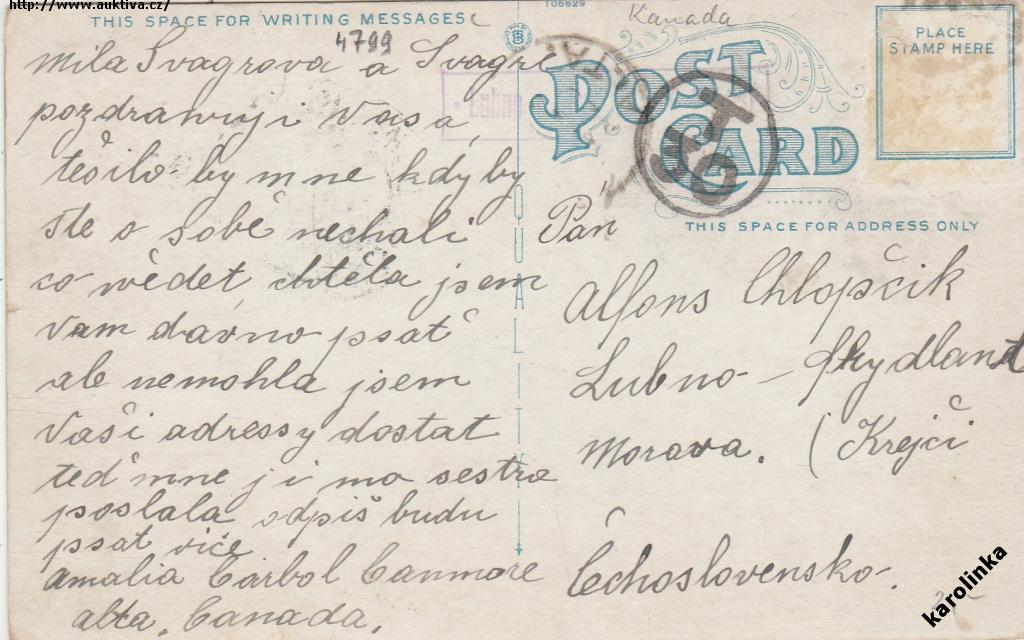 http://www.auktiva.cz/
THIS SPACE FOR WRITING MESSAGES
4799
106629
Kanada
POST CARD
PLACE
STAMP HERE
THIS SPACE FOR ADDRESS ONLY
QUALITY
T
mila Švagrova a Švagře
pozdrawuji Vas a
těšilo by mne kdyby
ste o sobě nechali
co wědet, chtěla jsem
Vam davno psat
ale nemohla jsem
Vaši adressy dostat
teď mne ji ma sestra
poslala odpiš budu
psat vice
Amalia Carbol Canmore
alta, Canada,
Pan
Alfons Chlopščik
Lubno - frydland
Morava. ( Krejči
Čechoslovensko.
karolinka